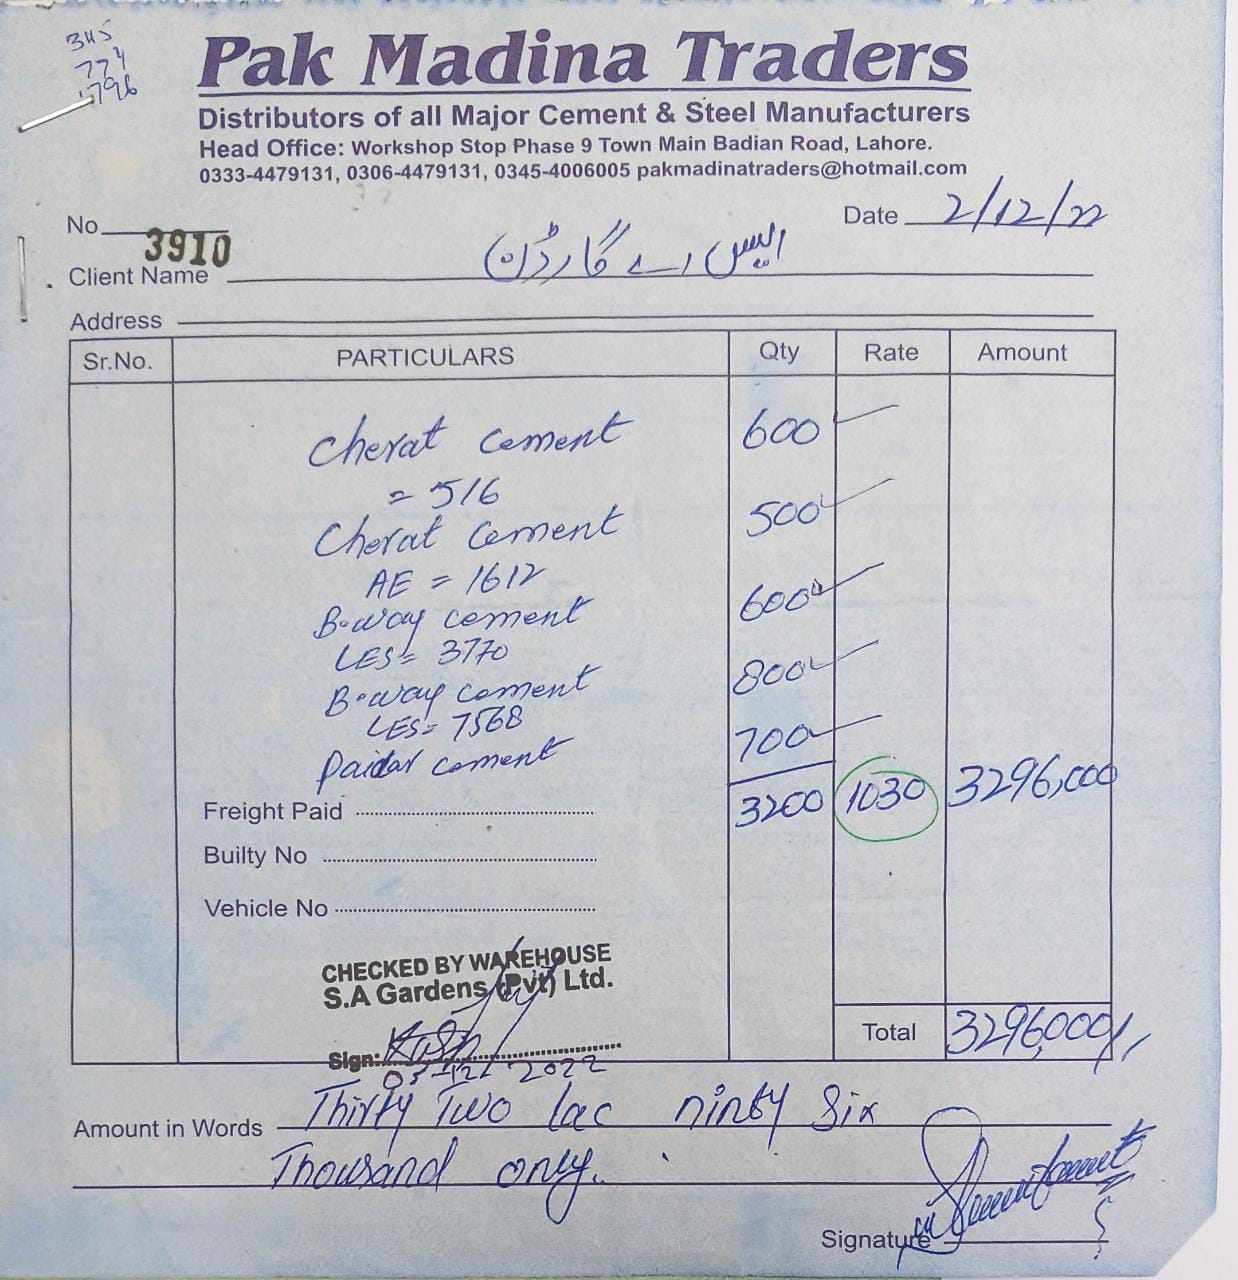 345
774
1796
Pak Madina Traders
Distributors of all Major Cement & Steel Manufacturers
Head Office: Workshop Stop Phase 9 Town Main Badian Road, Lahore.
0333-4479131, 0306-4479131, 0345-4006005 pakmadinatraders@hotmail.com
No 3910 Date 2/12/22
Client Name ایس اے گارڈن
Address
Sr.No. PARTICULARS Qty Rate Amount
Cherat cement 600
= 516
Cherat cement 500
AE = 1612
B-way cement 600
LES= 3770
B-way cement 800
LES= 7568
Paidar cement 700
Freight Paid 3200 1030 3296,000
Builty No
Vehicle No
CHECKED BY WAREHOUSE
S.A Gardens (Pvt) Ltd.
Sign:
03-12-2022
Total 3296,000/,
Amount in Words Thirty Two lac ninty Six
Thousand only.
Signature